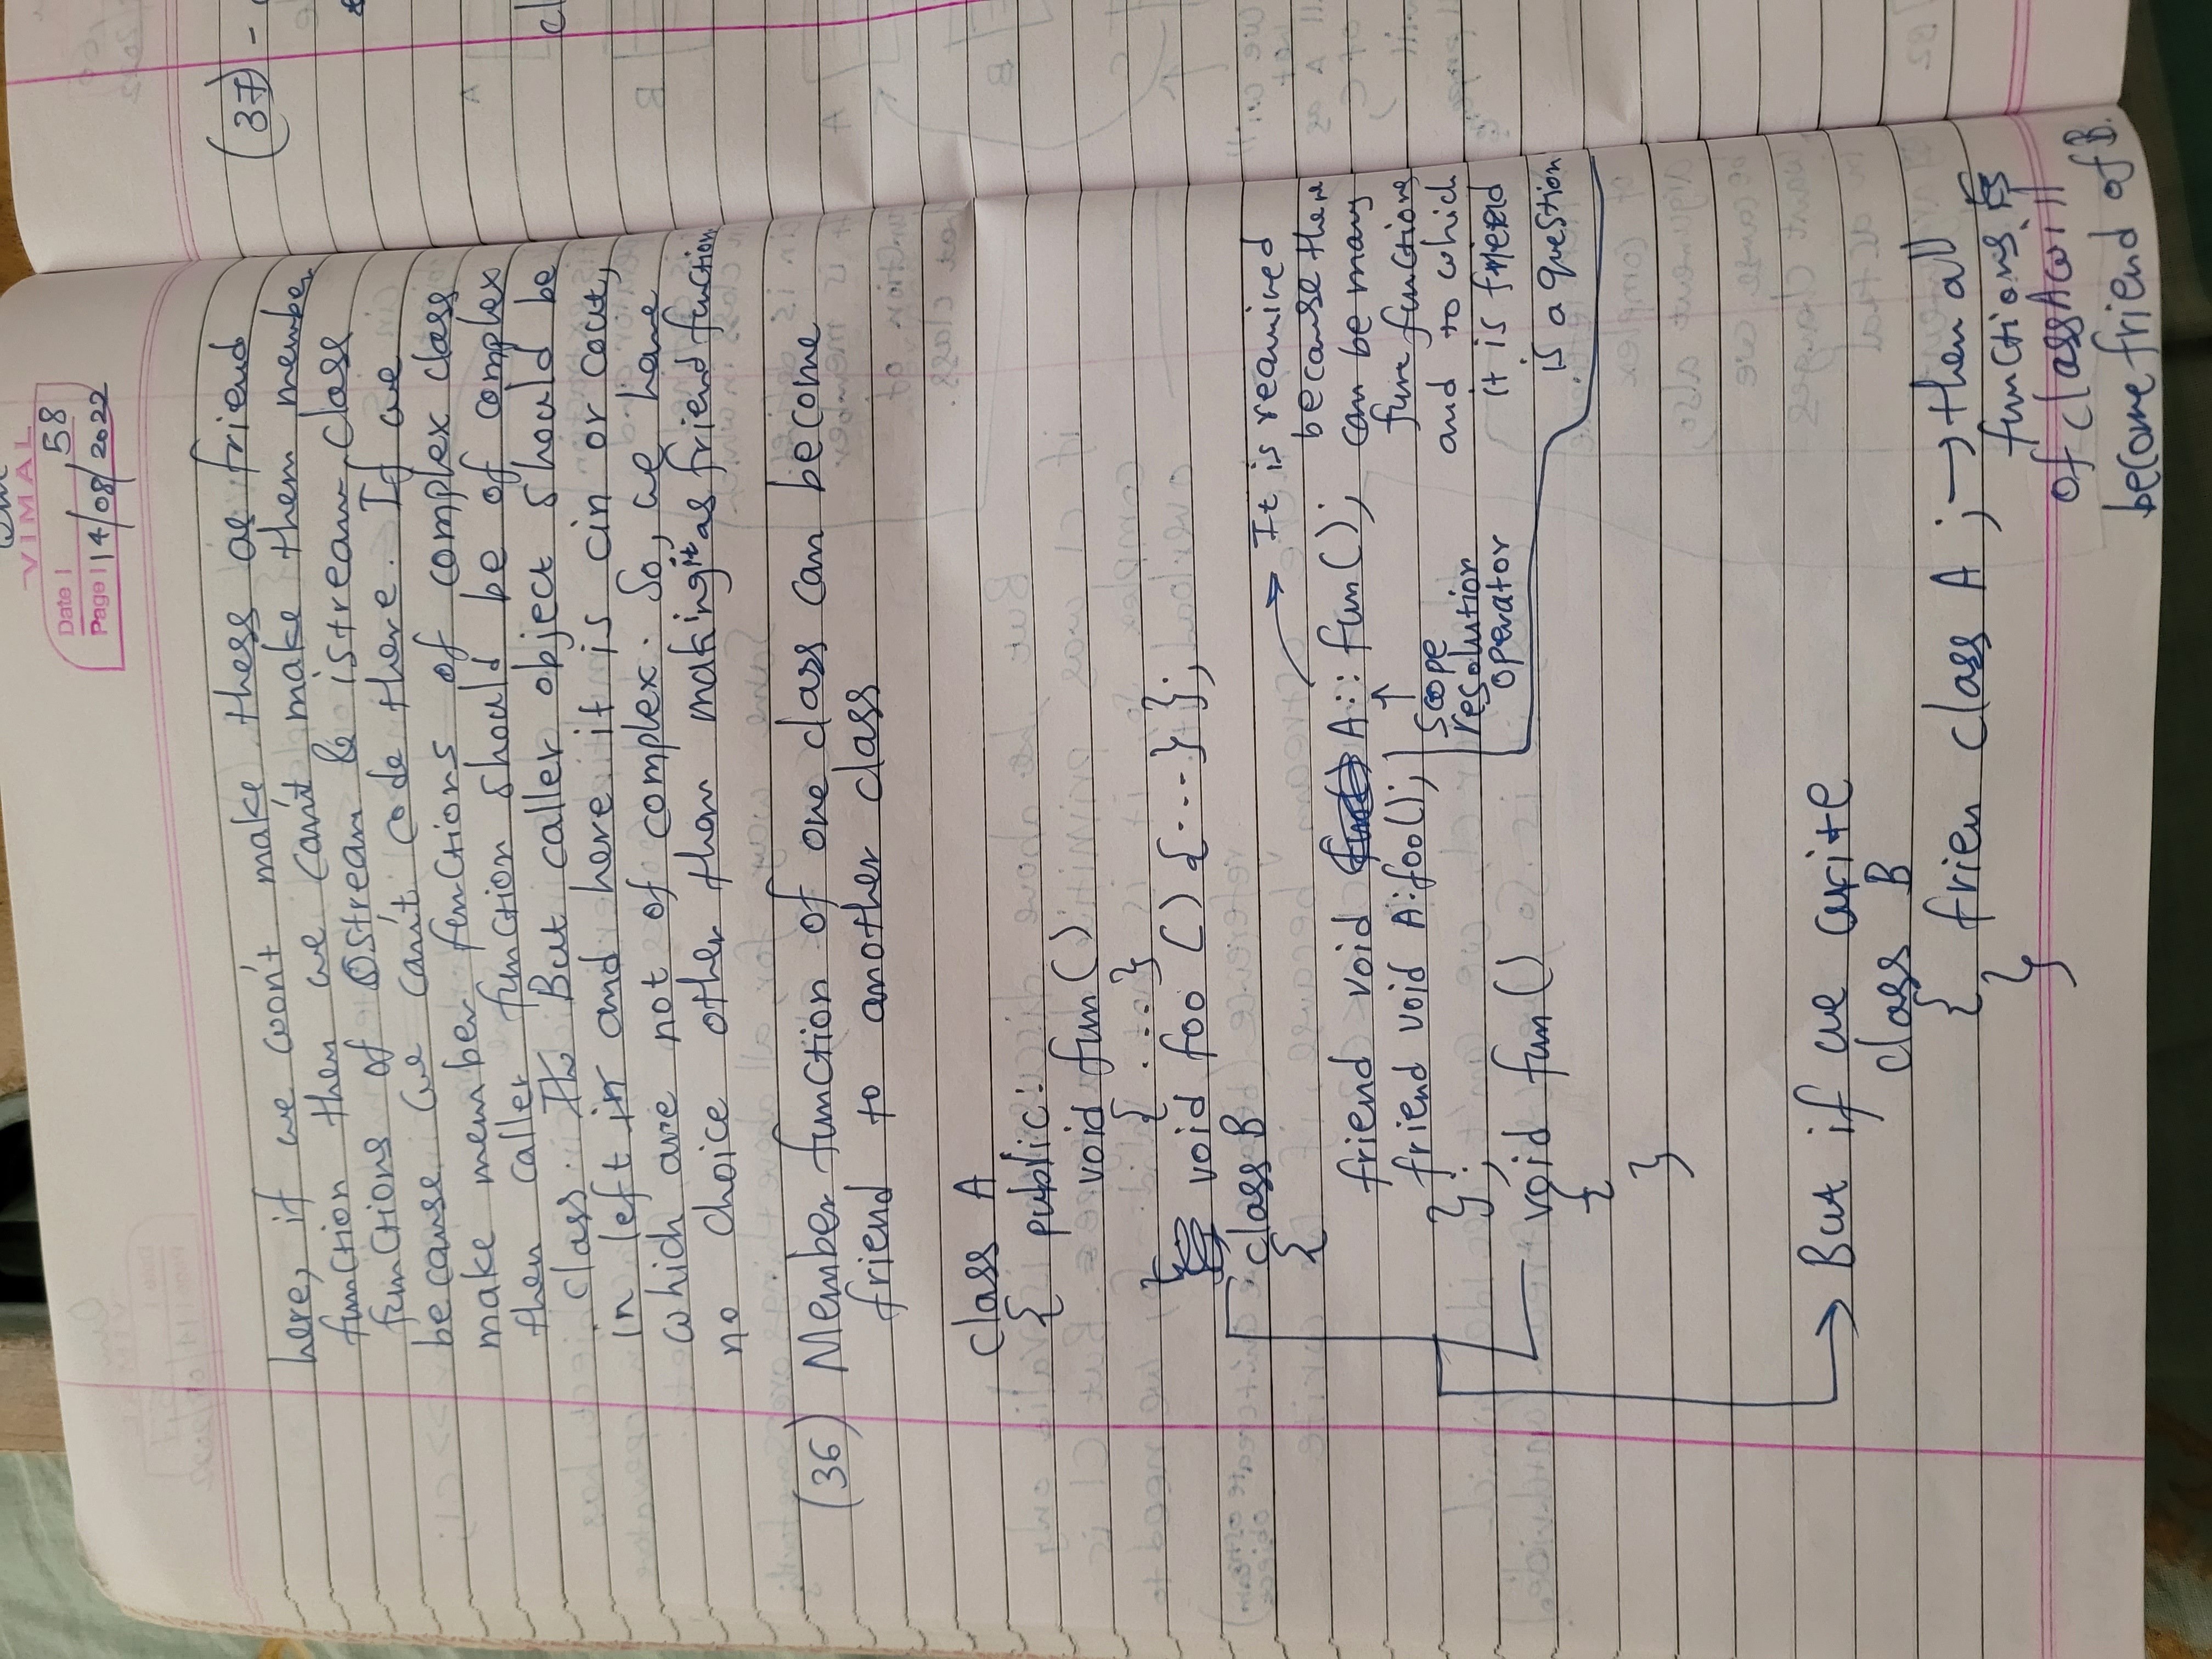 VIMAL
Date | 58
Page | 14/08/2022
here, if we won't make thess as friend
function then we can't make them member
functions of Ostream & istream class
because we can't code there. If we
make member functions of complex class
then caller function should be of complex
class. But caller object should be
in left and here it is cin or cout,
which are not of complex. So, we have
no choice other than making it as friend function
(36) Member function of one class can become
friend to another class
class A
{ public:
void fun()
{ ... }
void foo () {...} };
class B
{
friend void A::fun();
friend void A:foo();
};
scope
resolution
operator
It is required
because there
can be many
functions
and to which
it is friend
is a question
void fun()
{
}
But if we write
class B
{ frien class A ; → then all
functions
of class A will
become friend of B.
}
(37) -